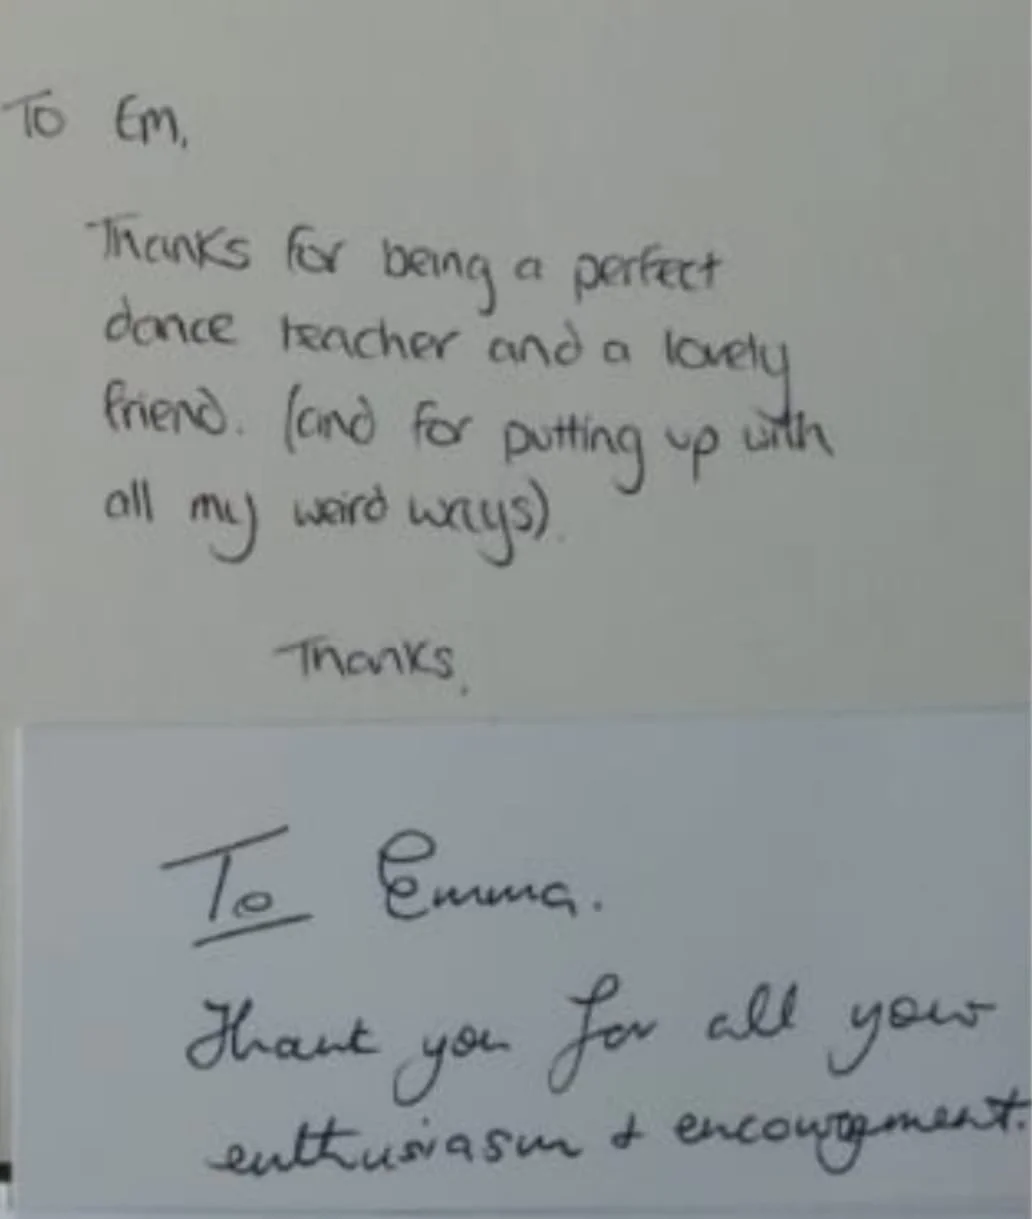 To Em,
Thanks for being a perfect
dance teacher and a lovely
friend. (and for putting up with
all my weird ways).
Thanks,
To Emma.
Thank you for all your
enthusiasm & encouragement.